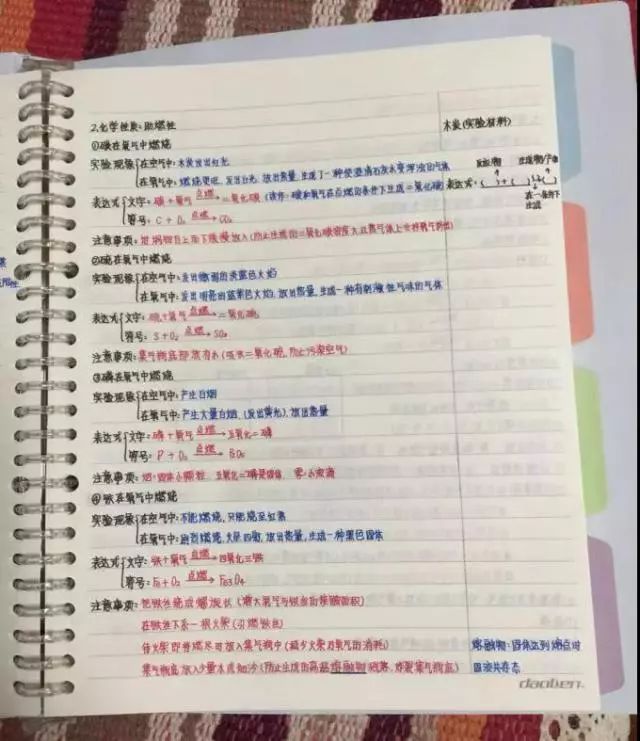 2.化学性质:助燃性
木炭(实验材料)
①碳在氧气中燃烧
实验现象 在空气中:木炭发出红光
反应物 生成物/产物
在氧气中:燃烧更旺,发出白光,放出热量,生成了一种使澄清石灰水变浑浊的气体
表达式:( )+( )→( )
在一条件下
生成
表达式 文字:碳+氧气 点燃→二氧化碳(读作:碳和氧气在点燃的条件下生成二氧化碳)
符号:C+O₂ 点燃→CO₂
注意事项:坩埚钳自上而下缓慢放入(防止生成的二氧化碳密度大
②硫在氧气中燃烧
实验现象 在空气中:发出微弱的淡蓝色火焰
在氧气中:发出明亮的蓝紫色火焰,放出热量,生成一种有刺激性气味的气体
表达式 文字:硫+氧气 点燃→二氧化硫
符号:S+O₂ 点燃→SO₂
注意事项:集气瓶底部放有水(吸收二氧化硫,防止污染空气)
③磷在氧气中燃烧
实验现象 在空气中:产生白烟
在氧气中:产生大量白烟,(发出黄光),放出热量
表达式 文字:磷+氧气 点燃→五氧化二磷
符号:P+O₂ 点燃→P₂O₅
注意事项:烟:固体小颗粒 五氧化二磷是固体 雾:小液滴
④铁在氧气中燃烧
实验现象 在空气中:不能燃烧,只能烧至红热
在氧气中:剧烈燃烧,火星四射,放出热量,生成一种黑色固体
表达式 文字:铁+氧气 点燃→四氧化三铁
符号:Fe+O₂ 点燃→Fe₃O₄
注意事项:把铁丝绕成螺旋状(增大氧气与铁丝的接触面积)
在铁丝下系一根火柴(引燃铁丝)
待火柴即将燃尽时放入集气瓶中(减少火柴对氧气的消耗)
熔融物:固体达到熔点时
集气瓶底放入少量水或细沙(防止生成的高温熔融物溅落,炸裂集气瓶底)
固液共存态
daolien